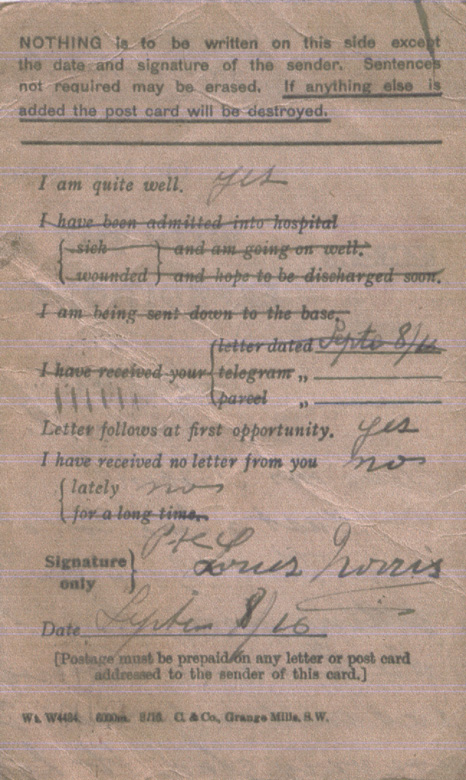 NOTHING is to be written on this side except
the date and signature of the sender. Sentences
not required may be erased. If anything else is
added the post card will be destroyed.
I am quite well. yes
I have been admitted into hospital
sick and am going on well.
wounded and hope to be discharged soon.
I am being sent down to the base.
letter dated Septe 8/16
I have received your telegram „
parcel „
Letter follows at first opportunity. yes
I have received no letter from you no
lately no
for a long time.
Signature only
Pte Louis Norris
Date Septem 8/16
[Postage must be prepaid on any letter or post card
addressed to the sender of this card.]
Wt. W4494. 6000m. 8/16. C. & Co., Grange Mills, S.W.